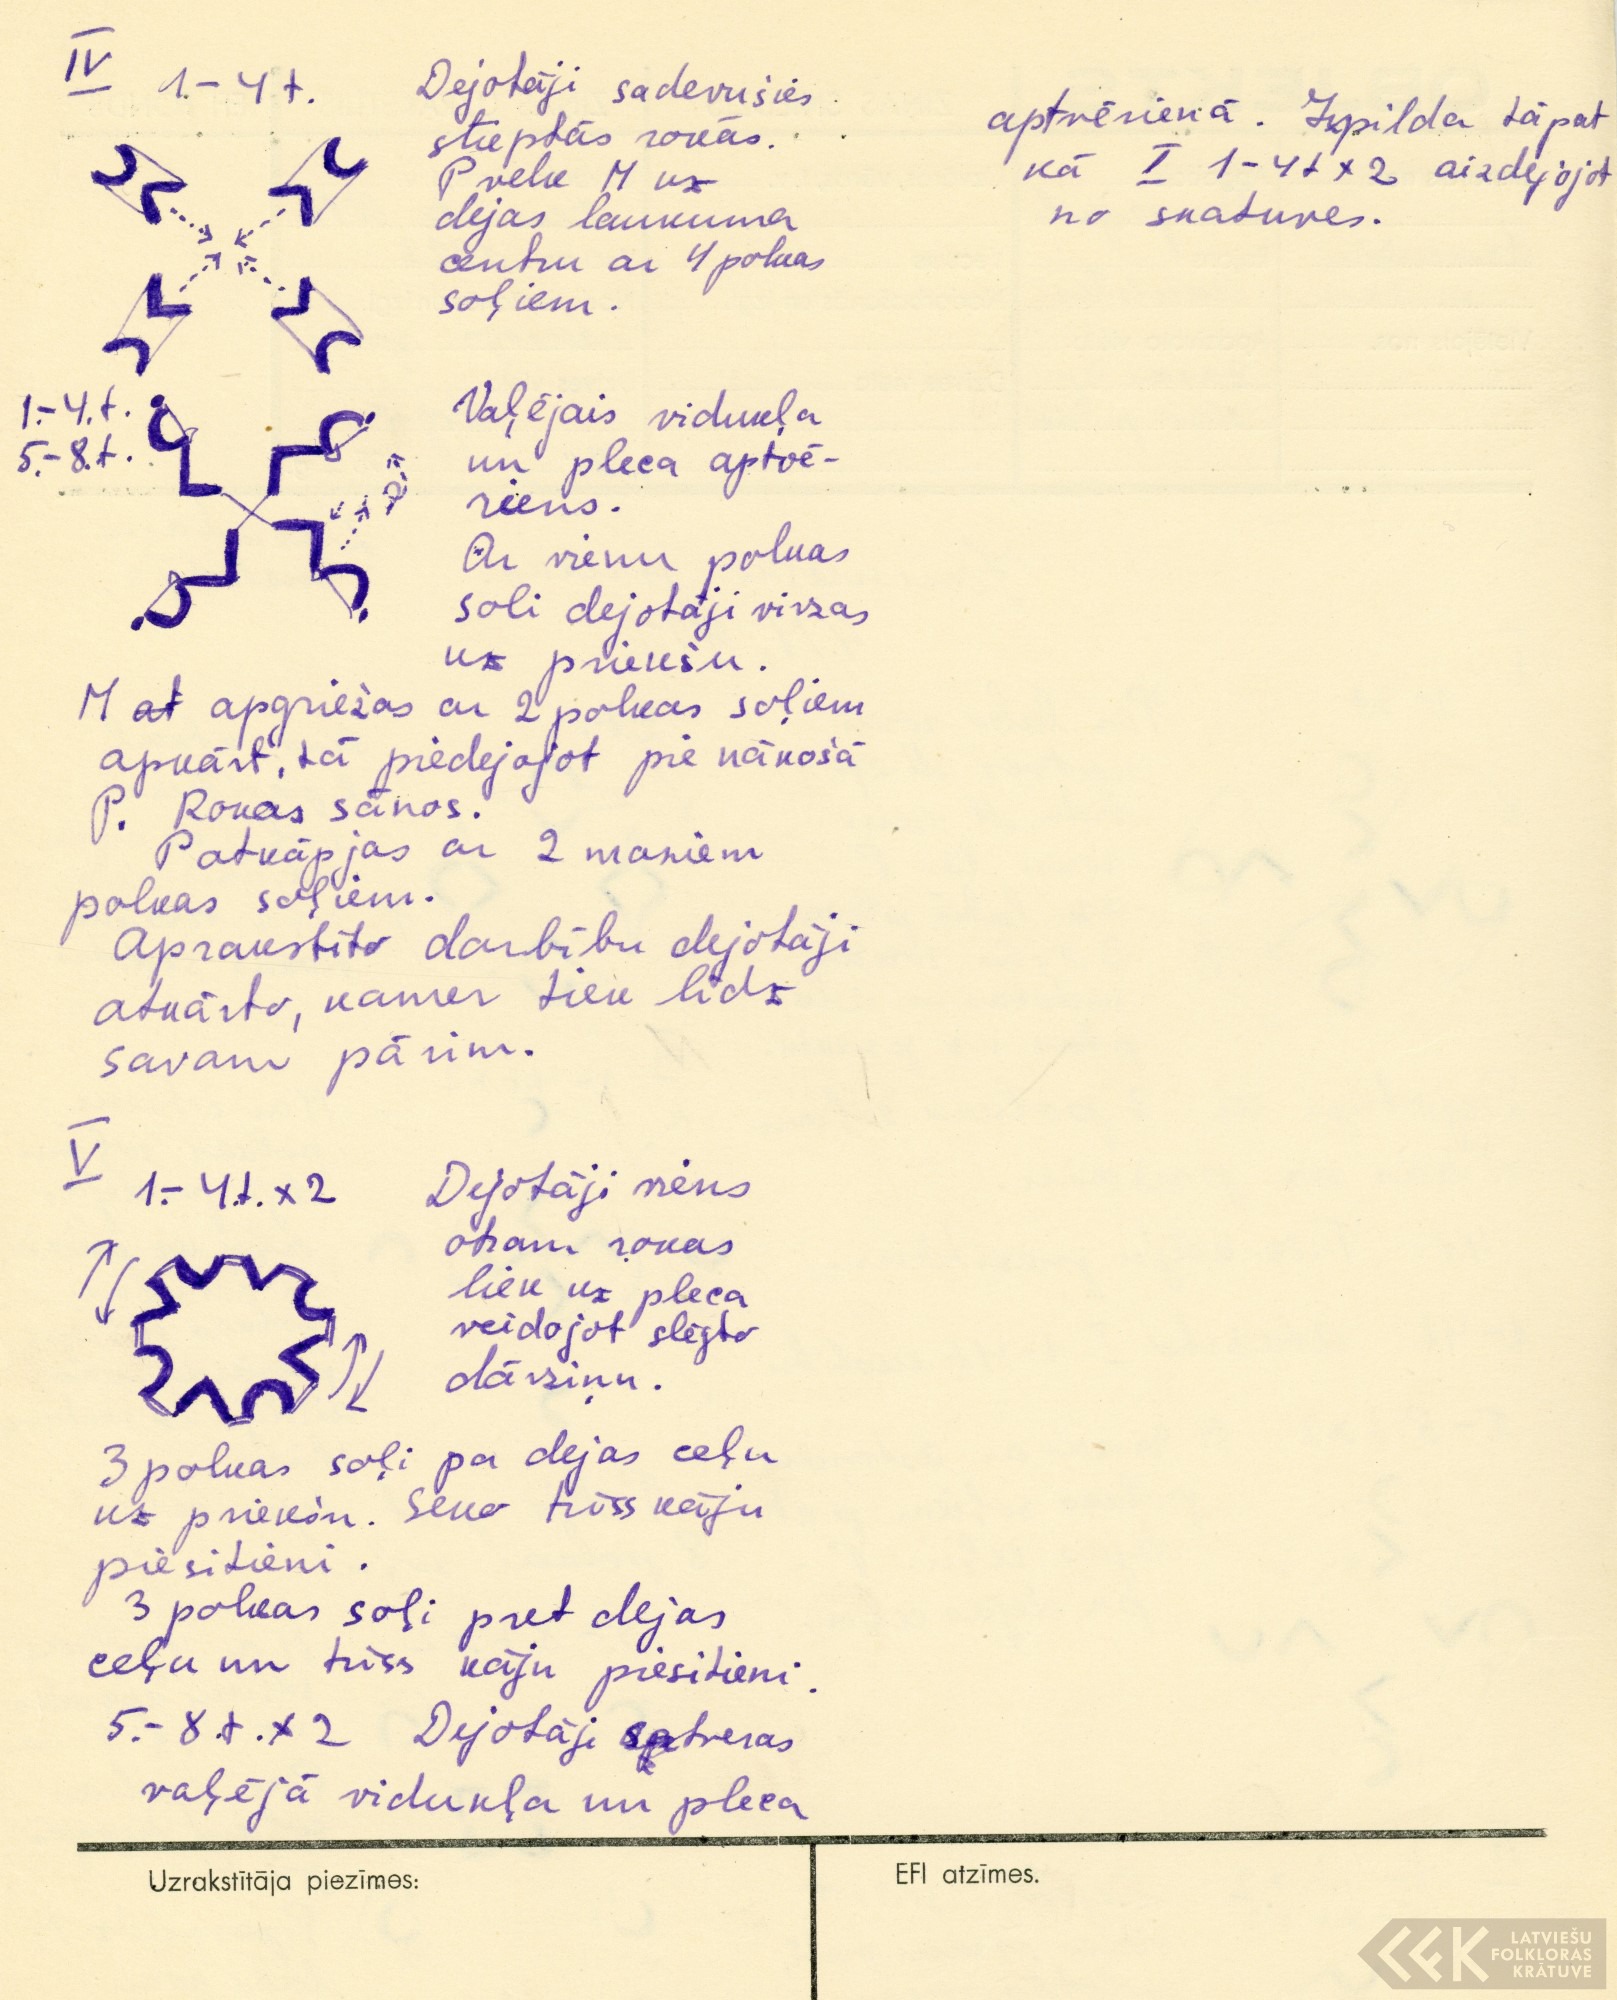 IV 1.-4 t. Dejotāji sadevušies
stieptās rokās.
P velk M uz
dejas laukuma
centru ar 4 polkas
soļiem.
1.-4.t.
5.-8.t.
Vaļējais vidukļa
un pleca aptvē-
riens.
Ar vienu polkas
soli dejotāji virzas
uz priekšu.
M at apgriežas ar 2 polkas soļiem
apkārt, tā piedejojot pie nākošā
P. Rokas sānos.
P atkāpjas ar 2 maziem
polkas soļiem.
Aprakstīto darbību dejotāji
atkārto, kamēr tiek līdz
savam pārim.
V 1.-4.t.x2 Dejotāji viens
otram rokas
liek uz pleca
veidojot slēgto
dārziņu.
3 polkas soļi pa dejas ceļu
uz priekšu. Seko trīss kāju
piesitieni.
3 polkas soļi pret dejas
ceļu un trīss kāju piesitieni.
5.-8.t.x2 Dejotāji satveras
vaļējā vidukļa un pleca
aptvērienā. Izpilda tāpat
kā I 1-4t x2 aizdejojot
no skatuves.
Uzrakstītāja piezīmes:
EFI atzīmes.
LATVIEŠU
FOLKLORAS
KRĀTUVE